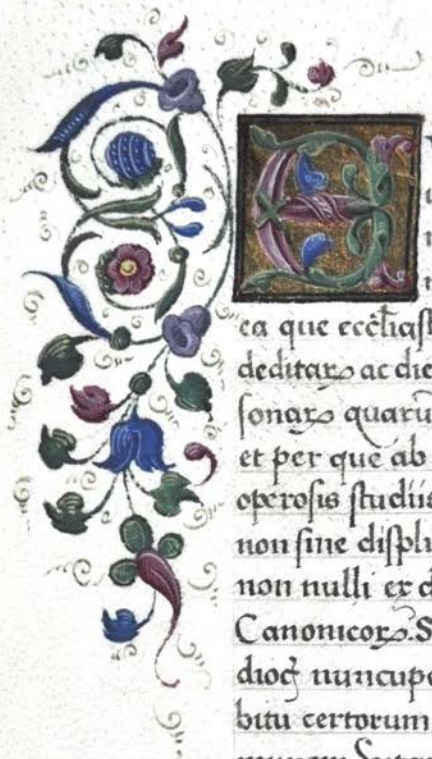 E
ea que eccĺiast
deditaꝝ ac die
sonaꝝ quarū
et per que ab
operosis studiis
non sine displi
non nulli ex d
Canonicoꝝ. S
nuncup
bitu certorum